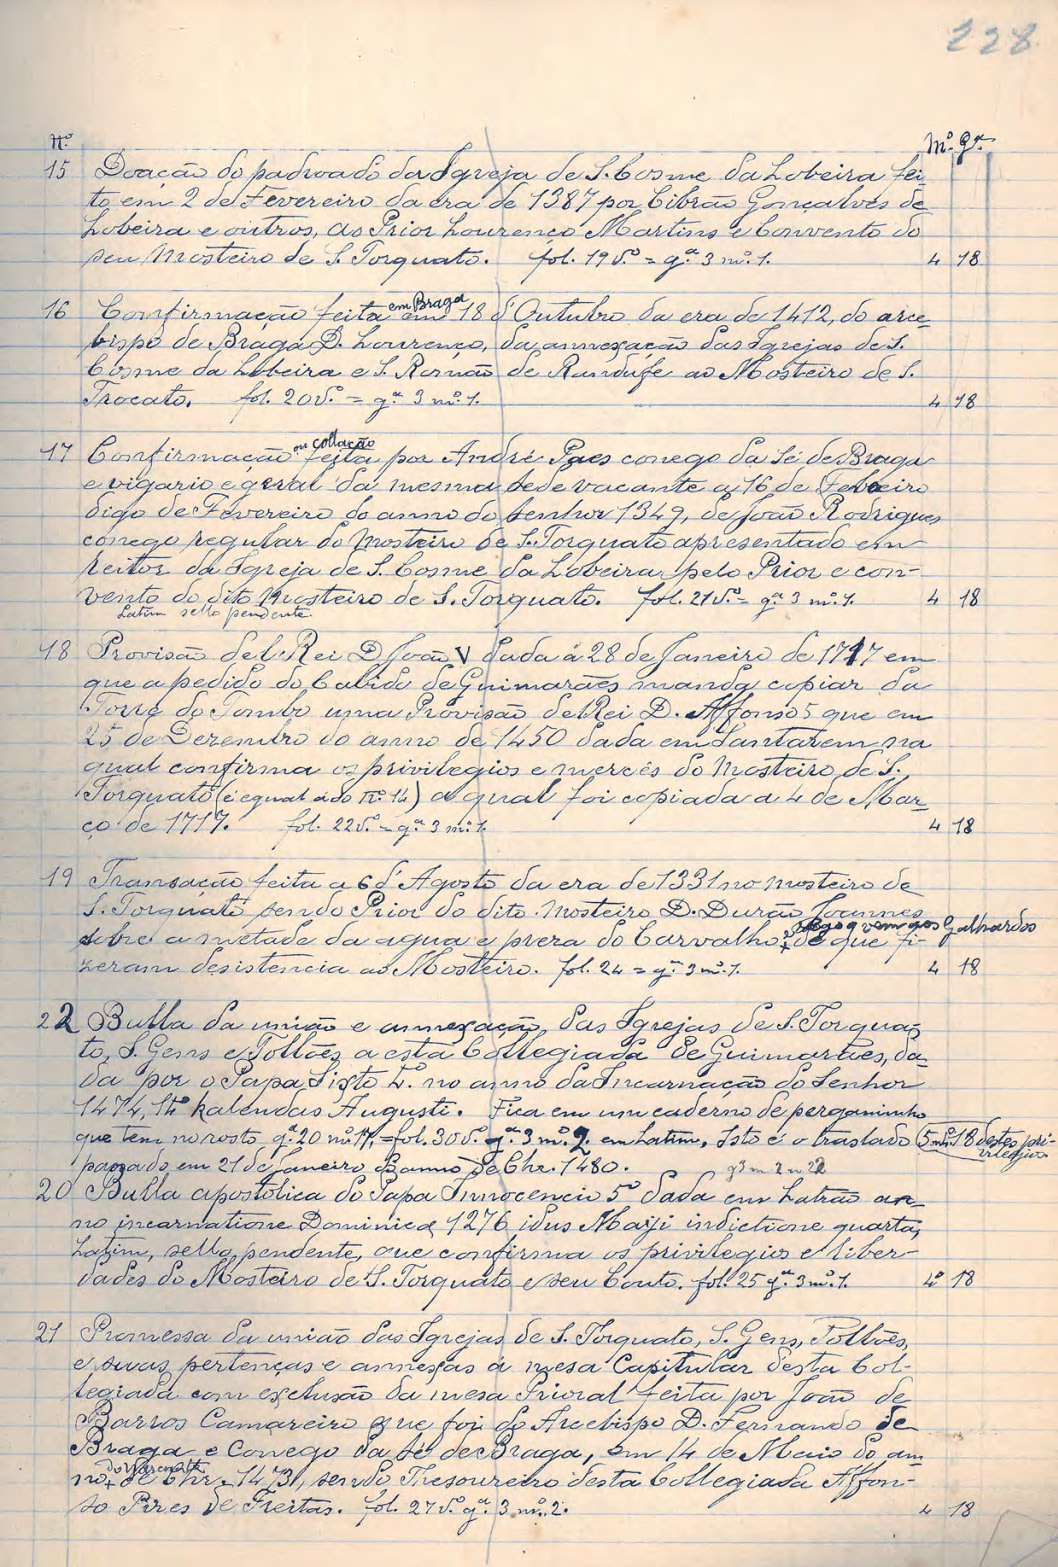 228
N.º M.º G.ª
15 Doação do padroado da Igreja de S. Cosme da Lobeira fei-
to em 2 de Fevereiro da era de 1387 por Cibrão Gonçalves de
Lobeira e outros, ao Prior Lourenço Martins e Convento do
seu Mosteiro de S. Torquato. fol. 19 v.º = g.ª 3 m.º 1. 4 18
16 Confirmação feita em Braga em 18 d'Outubro da era de 1412, do arce-
bispo de Braga D. Lourenço, da annexação das Igrejas de S.
Cosme da Lobeira e S. Romão de Randufe ao Mosteiro de S.
Trocato. fol. 20 v.º = g.ª 3 m.º 1. 4 18
17 Confirmação ou collação feita por André Paes conego da Sé de Braga
e vigario e geral da mesma sede vacante a 16 de Febreiro
digo de Fevereiro do anno do Senhor 1349, de João Rodrigues
conego regular do Mosteiro de S. Torquato apresentado em
Reitor da Igreja de S. Cosme da Lobeira pelo Prior e con-
vento do dito Mosteiro de S. Torquato. fol. 21 v.º = g.ª 3 m.º 1. 4 18
Latim sello pendente.
18 Provisão del Rei D. João V dada á 28 de Janeiro de 1717 em
que a pedido do Cabido de Guimarães manda copiar da
Torre do Tombo uma Provisão del Rei D. Affonso 5 que em
25 de Dezembro do anno de 1450 dada em Santarem na
qual confirma os privilegios e mercês do Mosteiro de S.
Torquato (é egual á do N.º 14) a qual foi copiada a 4 de Mar-
ço de 1717. fol. 22 v.º = g.ª 3 m.º 1. 4 18
19 Transação feita a 6 d'Agosto da era de 1331 no Mosteiro de
S. Torquato sendo Prior do dito Mosteiro D. Durão Joannes
sobre a metade da agua e preza do Carvalho, + de que fi-
+ rego q vem aos Galhardos
zeram desistencia ao Mosteiro. fol. 24 = g.ª 3 m.º 1. 4 18
22 Bulla da união e annexação das Igrejas de S. Torqua-
to, S. Gens e Tollões a esta Collegiada de Guimarães, da-
da por o Papa Sixto 4.º no anno da Incarnação do Senhor
1474, 14º kalendas Augusti. Fica em um caderno de pergaminho
que tem no rosto g.ª 20 m.º 14 = fol. 30 v.º g.ª 3 m.º 2. em Latim, isto é o traslado 5 m.º 18 destes pri-
vilegios
passado em 21 de Janeiro do anno de Chr. 1480. g 3 m 2 n 22
20 Bulla apostolica do Papa Innocencio 5º dada em Latrão an-
no incarnatione Dominica 1276 idus Maiji indictione quarta,
Latim, sello pendente, que confirma os privilegios e liber-
dades do Mosteiro de S. Torquato e seu Couto. fol. 25 g.ª 3 m.º 1. 4º 18
21 Promessa da união das Igrejas de S. Torquato, S. Gens, Tollões,
e suas pertenças e annexas á mesa Capitular desta Col-
legiada com exclusão da mesa Prioral feita por João de
Barros Camareiro que foi do Arcebispo D. Fernando de
Braga e Conego da Sé de Braga, em 14 de Maio do an-
no + de Chr. 1473, sendo Thesoureiro desta Collegiada Affon-
so Pires de Freitas. fol. 27 v.º g.ª 3 m.º 2. 4 18